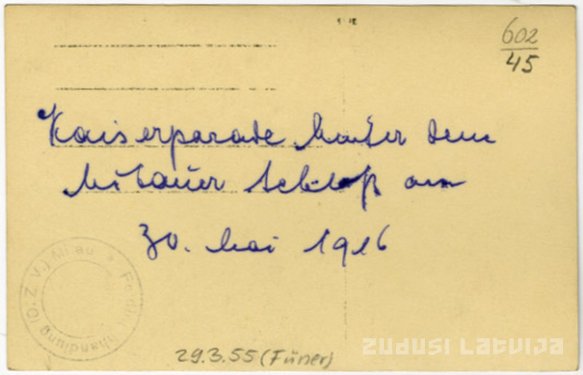 602
45
Kaiserparade hinter dem
Mitauer Schloß am
30. Mai 1916
29.3.55 (Füner)
ZUDUSI LATVIJA